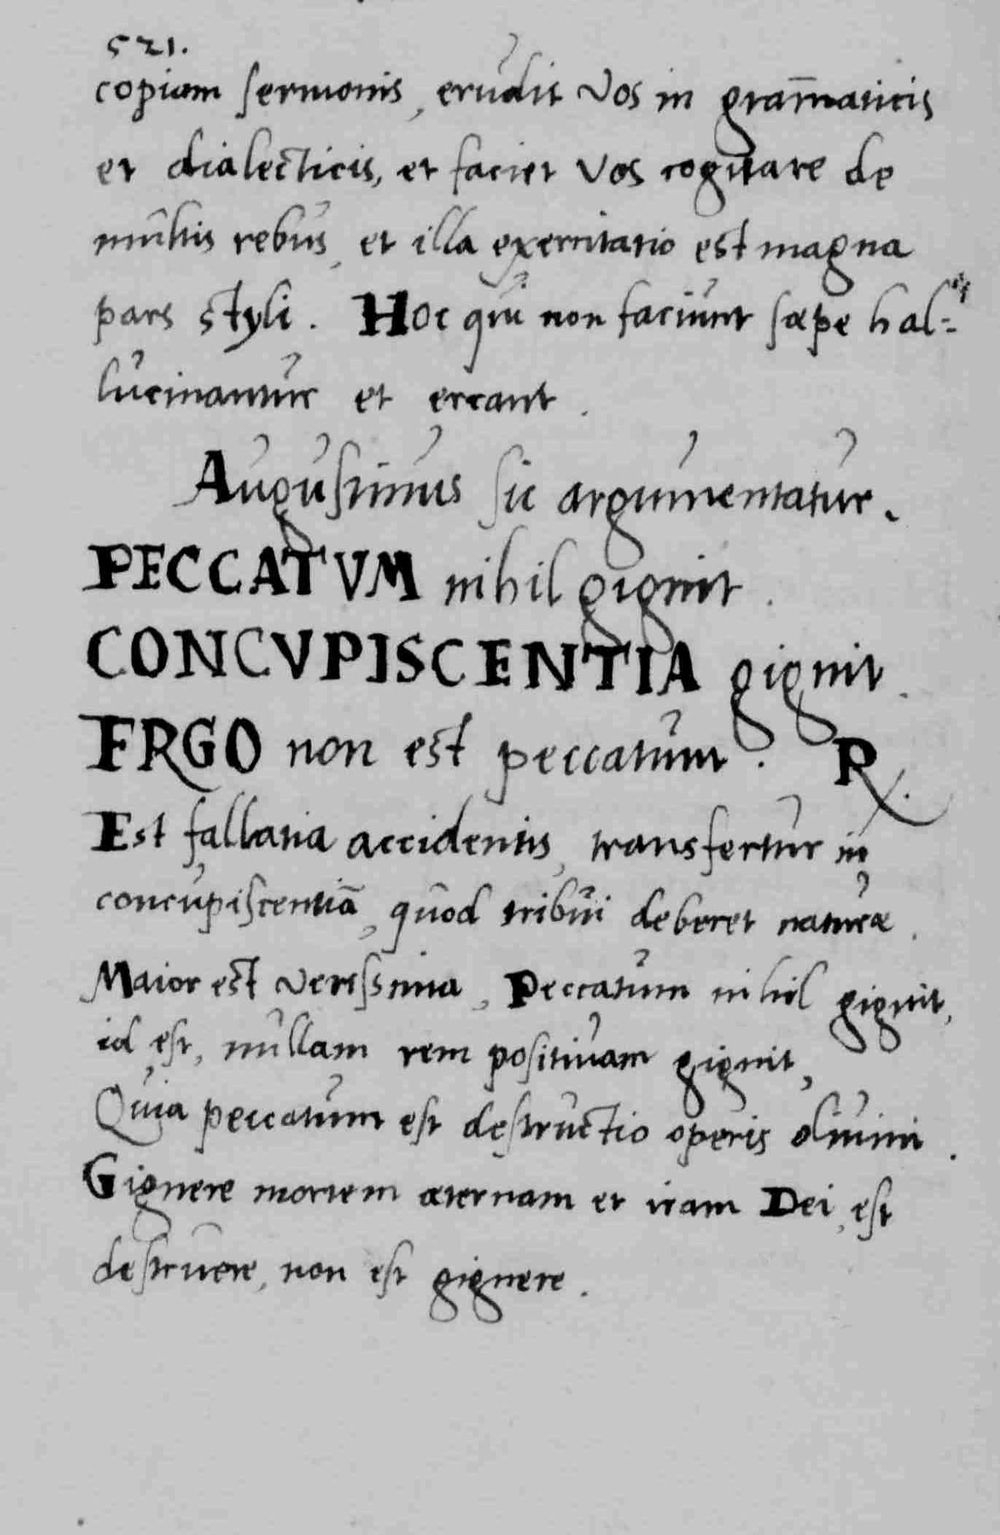 521.
copiam sermonis, erudit vos in gram̄aticis
et dialecticis, et faciet vos cogitare de
multis rebus, et illa exercitatio est magna
pars styli. Hoc qui non faciunt sæpe hal=
lucinantur et errant.
Augustinus sic argumentatur.
PECCATVM nihil gignit.
CONCVPISCENTIA gignit.
ERGO non est peccatum. R.
Est fallatia accidentis, transfertur in
concupiscentiā, quod tribui deberet naturæ.
Maior est verissima, Peccatum nihil gignit,
id est, nullam rem positiuam gignit,
Quia peccatum est destructio operis diuini.
Gignere mortem æternam et iram Dei, est
destruere, non est gignere.